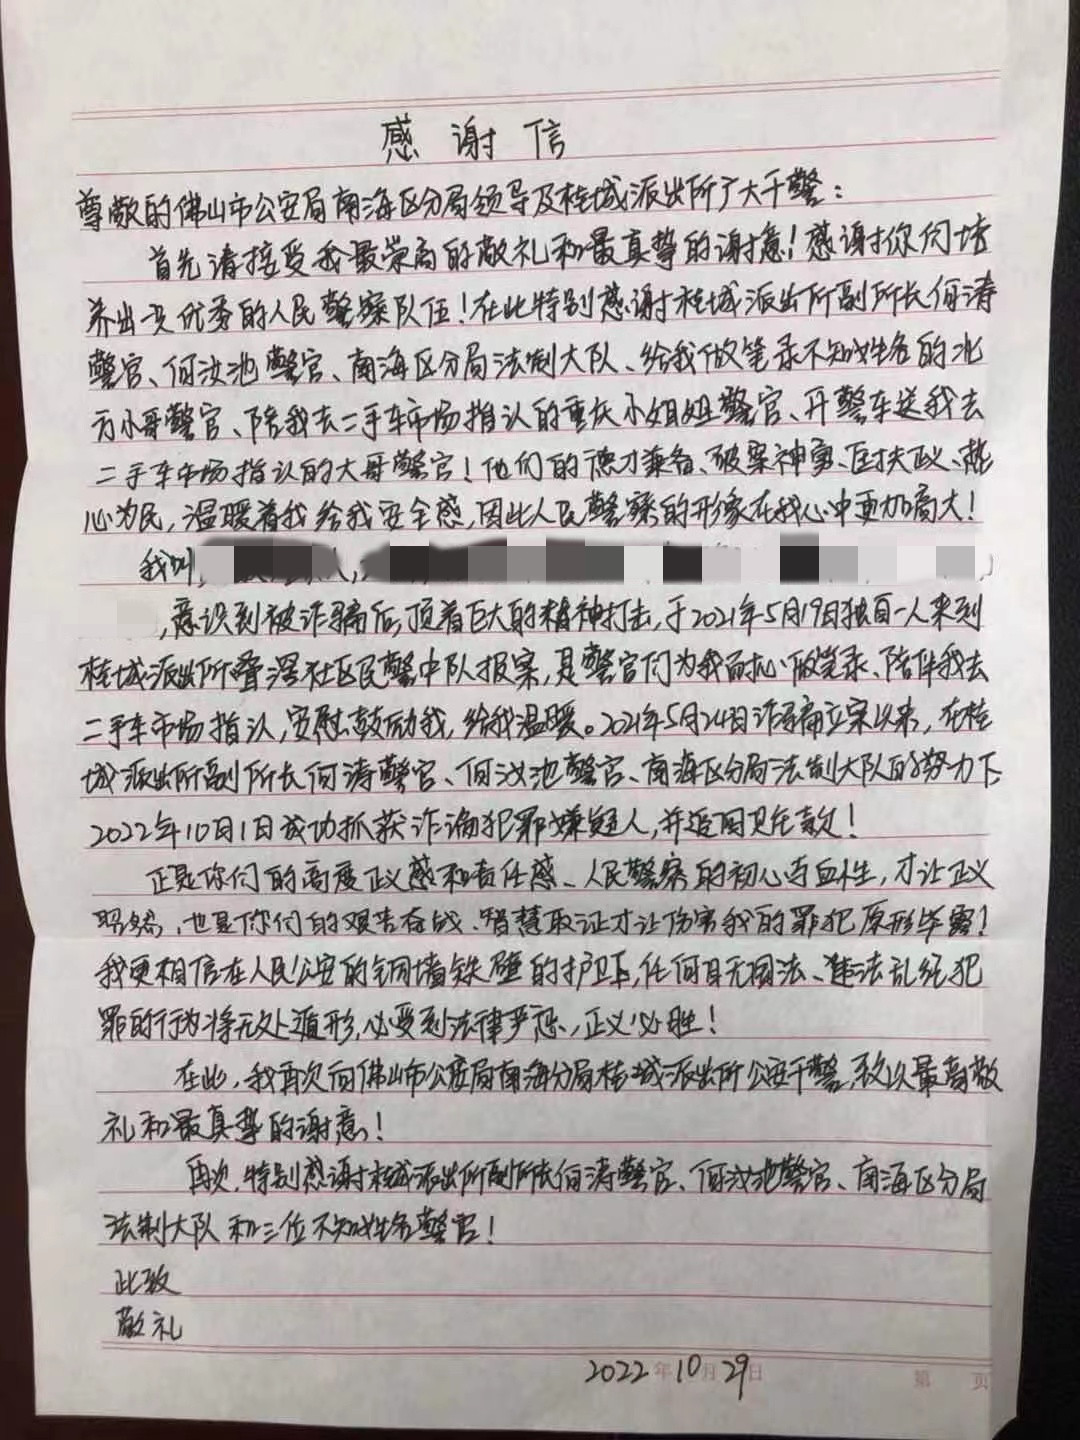 感谢信
尊敬的佛山市公安局南海区分局领导及桂城派出所广大干警：
首先请接受我最崇高的敬礼和最真挚的谢意！感谢你们培
养出一支优秀的人民警察队伍！在此特别感谢桂城派出所副所长何涛
警官、何汝池警官、南海区分局法制大队、给我做笔录不知姓名的北
方小哥警官、陪我去二手车市场指认的重庆小姐姐警官、开警车送我去
二手车市场指认的大哥警官！他们的德才兼备、破案神勇、匡扶正义、热
心为民，温暖着我给我安全感，因此人民警察的形像在我心中更加高大！
我叫
，意识到被诈骗后，顶着巨大的精神打击，于2021年5月19日独自一人来到
桂城派出所叠滘社区民警中队报案，是警官们为我耐心做笔录、陪伴我去
二手车市场指认，安慰鼓励我，给我温暖。2021年5月24日诈骗立案以来，在桂
城派出所副所长何涛警官、何汝池警官、南海区分局法制大队的努力下
2022年10月1日成功抓获诈骗犯罪嫌疑人，并追回卫生款！
正是你们的高度正义感和责任感、人民警察的初心与血性，才让正义
昭然，也是你们的艰苦奋战、智慧取证才让伤害我的罪犯原形毕露！
我更相信在人民公安的铜墙铁壁的护卫下，任何目无国法、违法乱纪犯
罪的行为将无处遁形，必受到法律严惩，正义必胜！
在此，我再次向佛山市公安局南海分局桂城派出所公安干警，致以最高敬
礼和最真挚的谢意！
再次，特别感谢桂城派出所副所长何涛警官、何汝池警官、南海区分局
法制大队和三位不知姓名警官！
此致
敬礼
2022年10月29日
第 页